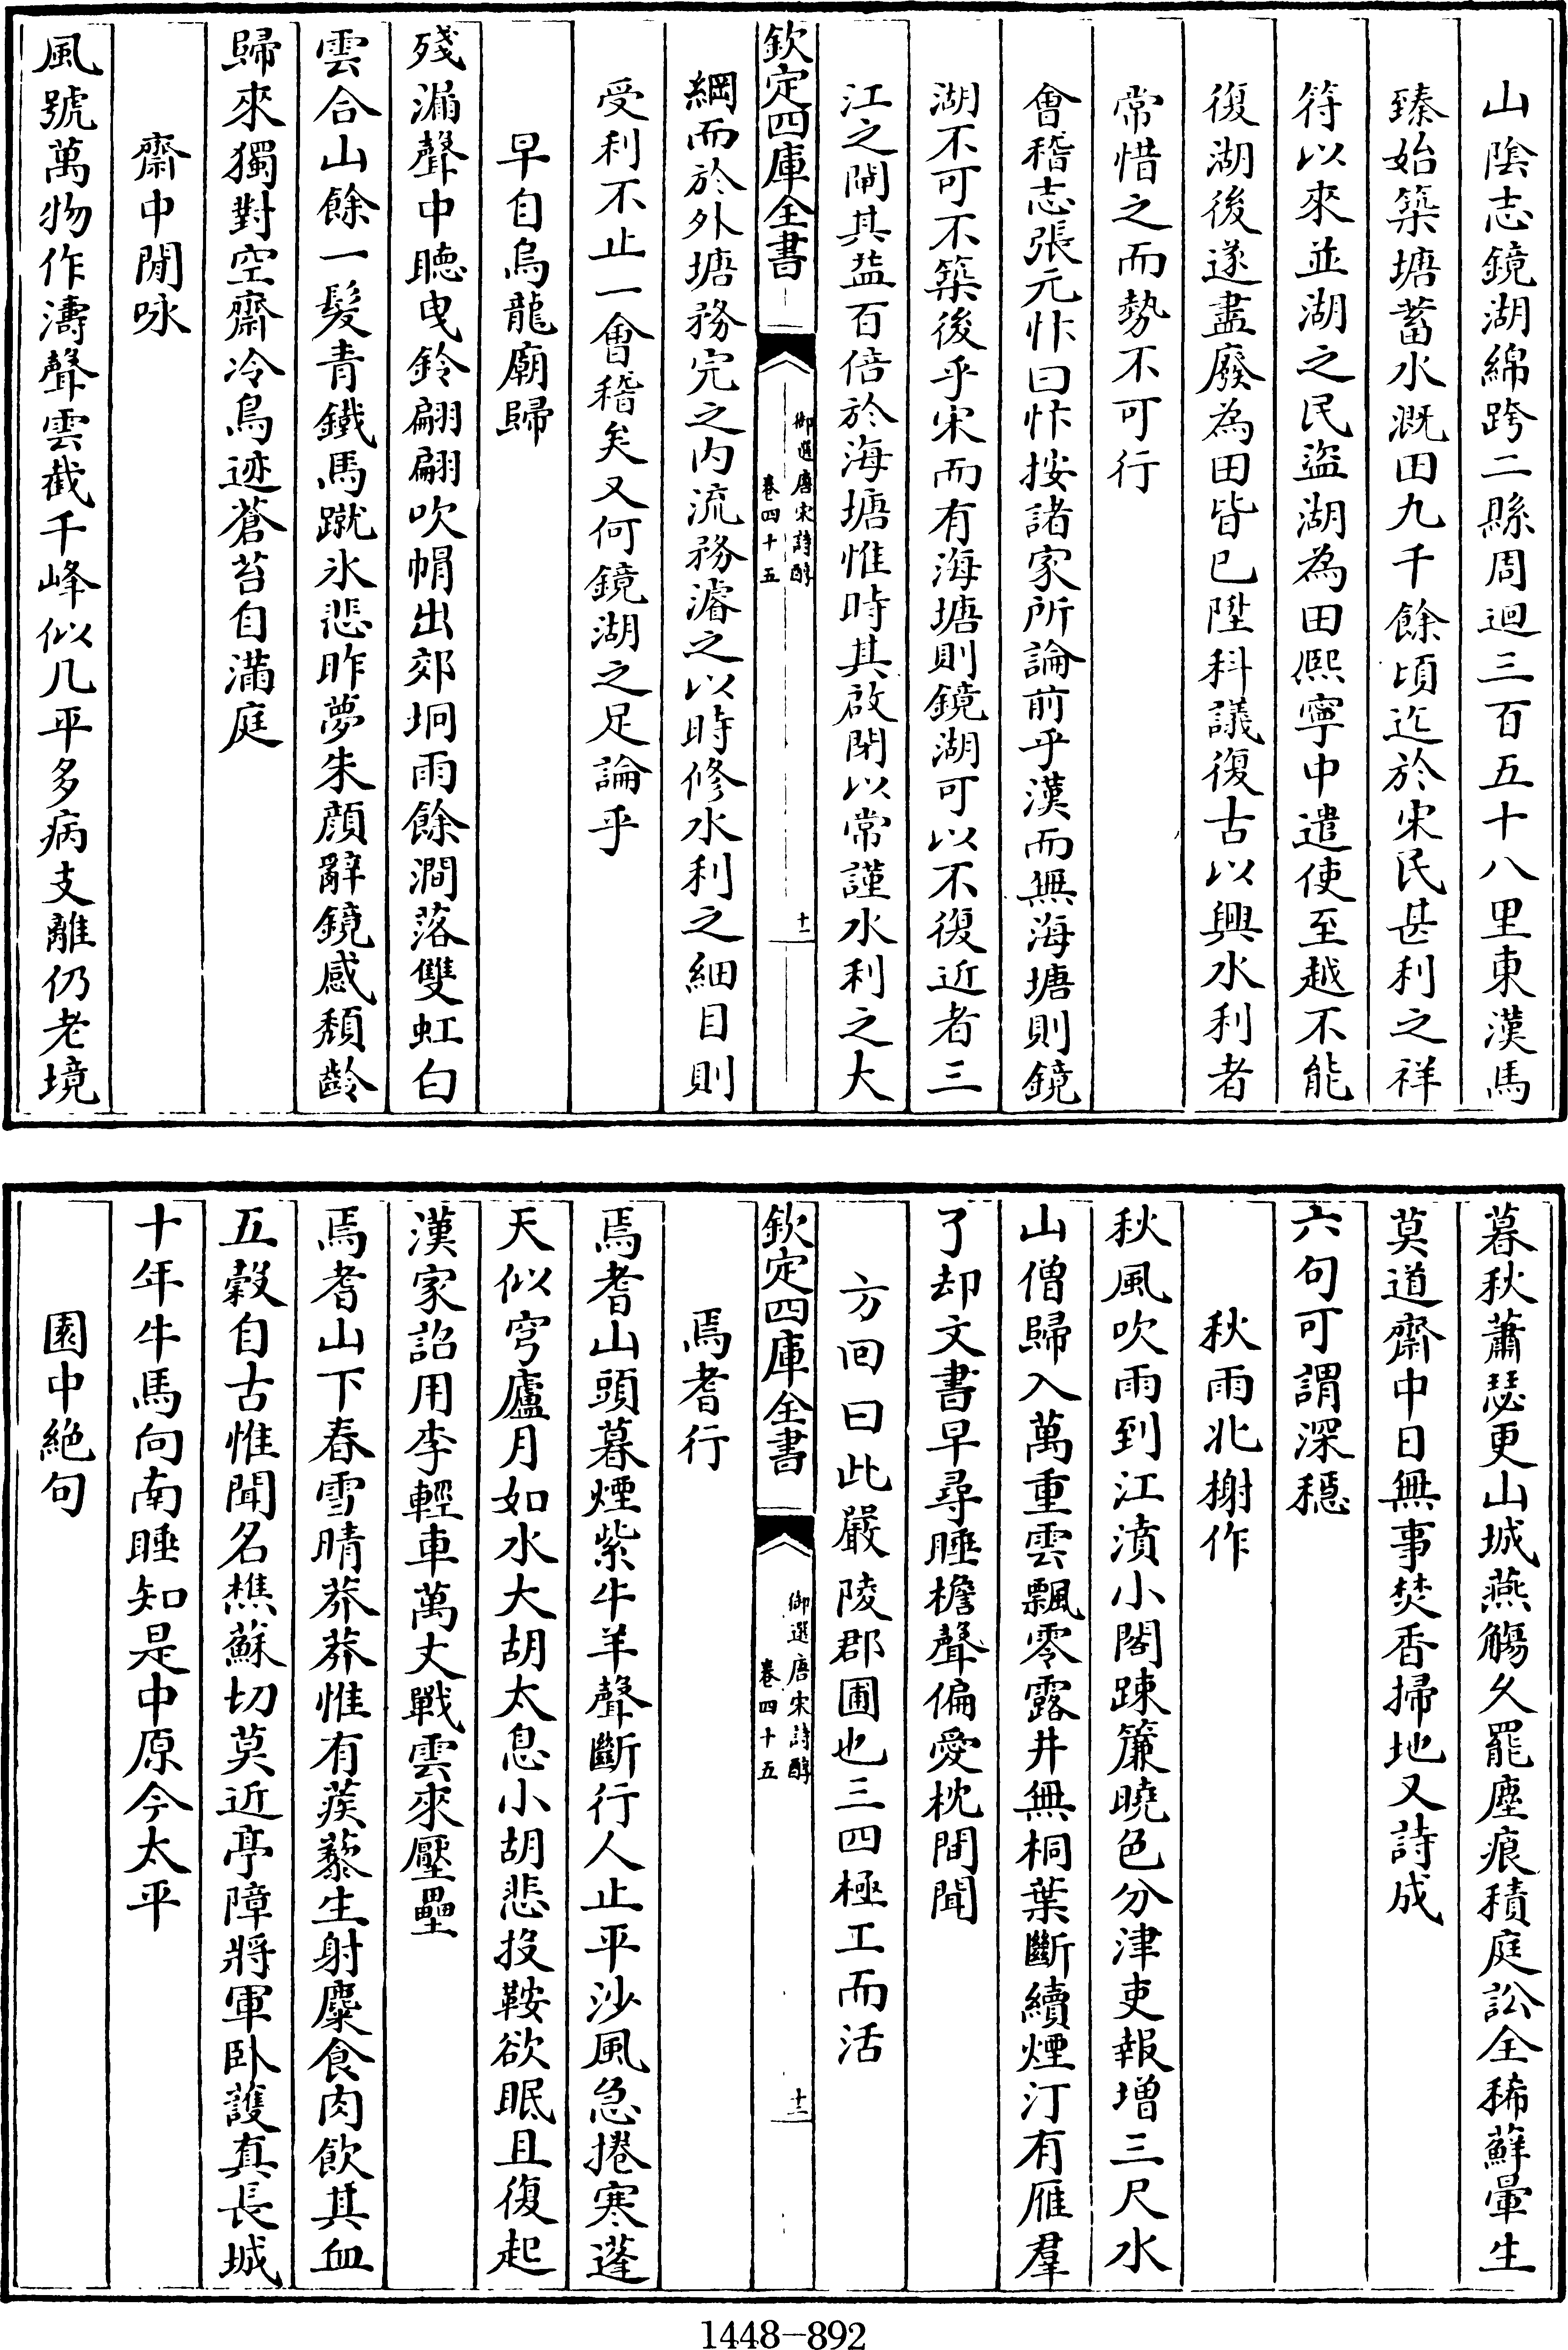 山陰志鏡湖綿跨二縣周迴三百五十八里東漢馬
臻始築塘蓄水溉田九千餘頃迄於宋民甚利之祥
符以來並湖之民盜湖為田熈寧中遣使至越不能
復湖後遂盡廢為田皆已陞科議復古以興水利者
常惜之而勢不可行
會稽志張元忭曰忭按諸家所論前乎漢而無海塘則鏡
湖不可不築後乎宋而有海塘則鏡湖可以不復近者三
江之閘其益百倍於海塘惟時其啟閉以常謹水利之大
欽定四庫全書
御選唐宋詩醇
卷四十五
十一
綱而於外塘務完之内流務濬之以時修水利之細目則
受利不止一會稽矣又何鏡湖之足論乎
早自烏龍廟歸
殘漏聲中聴曳鈴翩翩吹帽出郊坰雨餘澗落雙虹白
雲合山餘一髮青鐵馬蹴氷悲昨夢朱顔辭鏡感頽齡
歸來獨對空齋冷鳥迹蒼苔自滿庭
齋中閒咏
風號萬物作濤聲雲截千峰似几平多病支離仍老境
暮秋蕭瑟更山城燕觴久罷塵痕積庭訟全稀蘚暈生
莫道齋中日無事焚香掃地又詩成
六句可謂深穩
秋雨北榭作
秋風吹雨到江濆小閣踈簾曉色分津吏報增三尺水
山僧歸入萬重雲飄零露井無桐葉斷續煙汀有雁羣
了却文書早尋睡檐聲偏愛枕間聞
方回曰此嚴陵郡圃也三四極工而活
欽定四庫全書
御選唐宋詩醇
卷四十五
十二
焉耆行
焉耆山頭暮煙紫牛羊聲斷行人止平沙風急捲寒蓬
天似穹廬月如水大胡太息小胡悲投鞍欲眠且復起
漢家詔用李輕車萬丈戰雲來壓壘
焉耆山下春雪晴莽莽惟有蒺藜生射麋食肉飲其血
五穀自古惟聞名樵蘇切莫近亭障將軍卧護真長城
十年牛馬向南睡知是中原今太平
園中絶句
1448-892